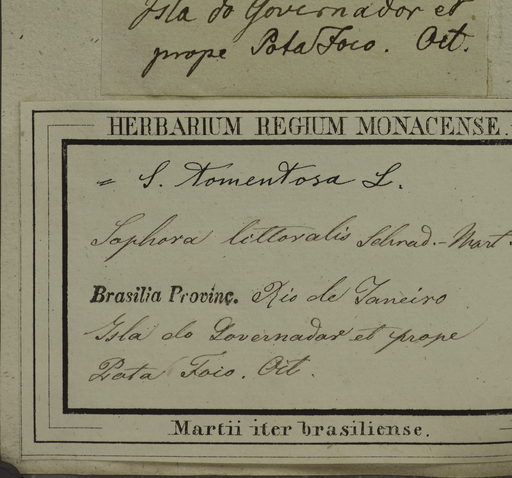 Isla do Governador et
prope Pota Foco. Oct.
HERBARIUM REGIUM MONACENSE.
= S. tomentosa L.
Sophora littoralis Schrad. - Mart.
Brasilia Provinç. Rio de Janeiro
Isla do Governador et prope
Pota Foco. Oct.
Martii iter brasiliense.